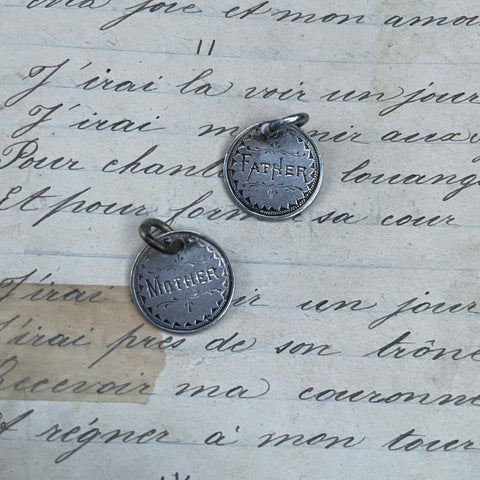 joie et mon amou
"
J'irai la voir un jour
J'irai m nir aux
Pour chant louang
Et pour form sa cour
FATHER
MOTHER
J'irai ir un jour
J'irai près de son trône
Recevoir ma couronne
Et régner à mon tour